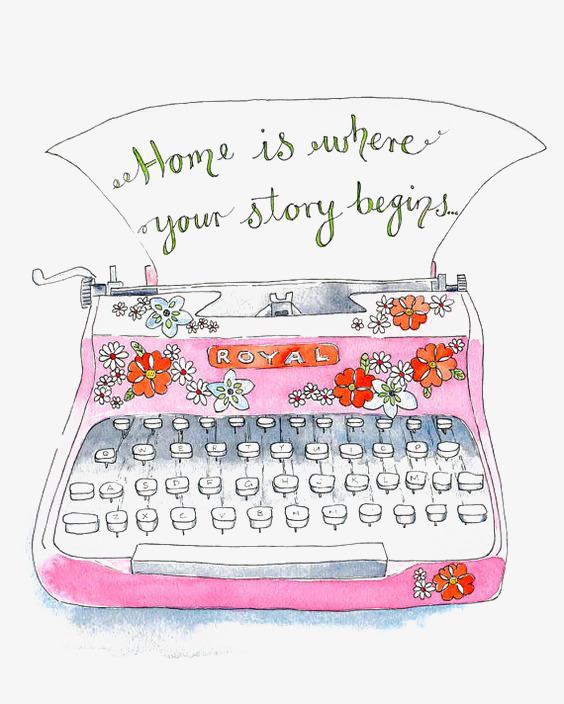 Home is where
your story begins...
ROYAL
Q W E R T Y U I O P
A S D R G H J K L M
Z X C V B N